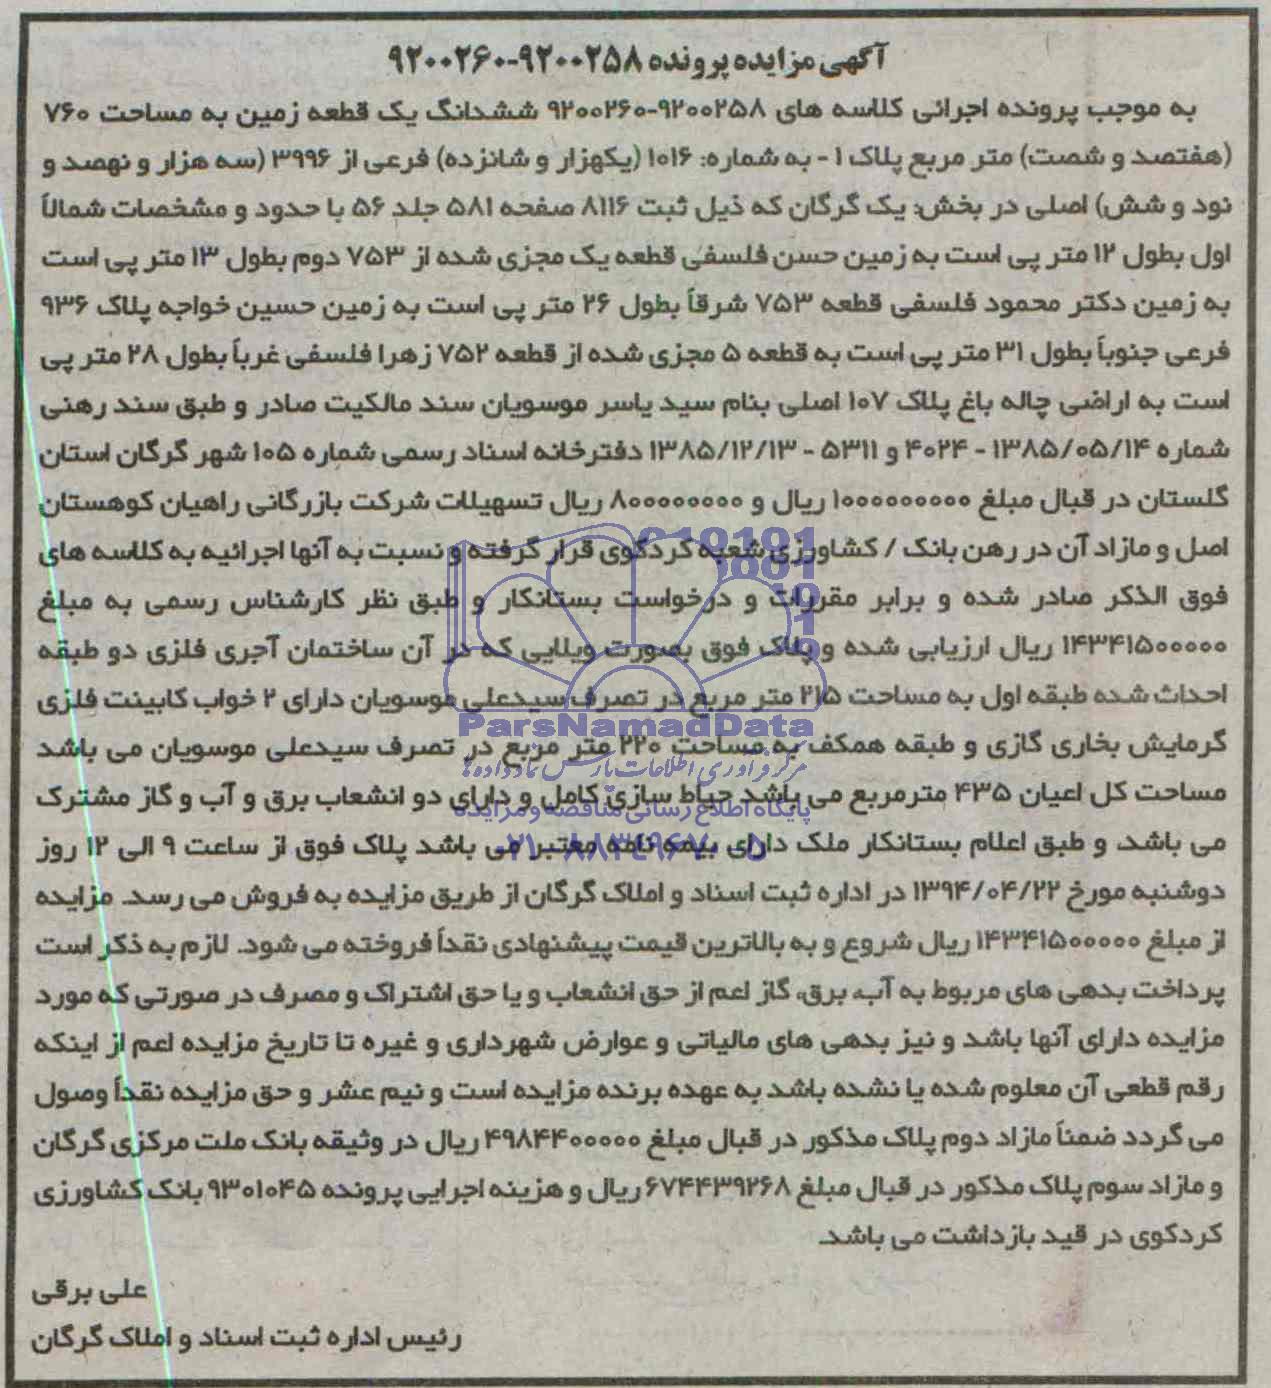 آگهی مزایده پرونده ۹۲۰۰۲۵۸-۹۲۰۰۲۶۰
به موجب پرونده اجرائی کلاسه های ۹۲۰۰۲۵۸-۹۲۰۰۲۶۰ ششدانگ یک قطعه زمین به مساحت ۷۶۰
(هفتصد و شصت) متر مربع پلاک ۱ - به شماره: ۱۰۱۶ (یکهزار و شانزده) فرعی از ۳۹۹۶ (سه هزار و نهصد و
نود و شش) اصلی در بخش: یک گرگان که ذیل ثبت ۸۱۱۶ صفحه ۵۸۱ جلد ۵۶ با حدود و مشخصات شمالاً
اول بطول ۱۲ متر پی است به زمین حسن فلسفی قطعه یک مجزی شده از ۷۵۳ دوم بطول ۱۳ متر پی است
به زمین دکتر محمود فلسفی قطعه ۷۵۳ شرقاً بطول ۲۶ متر پی است به زمین حسین خواجه پلاک ۹۳۶
فرعی جنوباً بطول ۳۱ متر پی است به قطعه ۵ مجزی شده از قطعه ۷۵۲ زهرا فلسفی غرباً بطول ۲۸ متر پی
است به اراضی چاله باغ پلاک ۱۰۷ اصلی بنام سید یاسر موسویان سند مالکیت صادر و طبق سند رهنی
شماره ۱۳۸۵/۰۵/۱۴ - ۴۰۲۴ و ۵۳۱۱ - ۱۳۸۵/۱۲/۱۳ دفترخانه اسناد رسمی شماره ۱۰۵ شهر گرگان استان
گلستان در قبال مبلغ ۱۰۰۰۰۰۰۰۰۰ ریال و ۸۰۰۰۰۰۰۰۰ ریال تسهیلات شرکت بازرگانی راهیان کوهستان
اصل و مازاد آن در رهن بانک / کشاورزی شعبه کردکوی قرار گرفته و نسبت به آنها اجرائیه به کلاسه های
فوق الذکر صادر شده و برابر مقررات و درخواست بستانکار و طبق نظر کارشناس رسمی به مبلغ
۱۴۳۴۱۵۰۰۰۰۰ ریال ارزیابی شده و پلاک فوق بصورت ویلایی که در آن ساختمان آجری فلزی دو طبقه
احداث شده طبقه اول به مساحت ۲۱۵ متر مربع در تصرف سیدعلی موسویان دارای ۲ خواب کابینت فلزی
گرمایش بخاری گازی و طبقه همکف به مساحت ۲۲۰ متر مربع در تصرف سیدعلی موسویان می باشد
مساحت کل اعیان ۴۳۵ مترمربع می باشد حیاط سازی کامل و دارای دو انشعاب برق و آب و گاز مشترک
می باشد. و طبق اعلام بستانکار ملک دارای بیمه نامه معتبر می باشد پلاک فوق از ساعت ۹ الی ۱۲ روز
دوشنبه مورخ ۱۳۹۴/۰۴/۲۲ در اداره ثبت اسناد و املاک گرگان از طریق مزایده به فروش می رسد. مزایده
از مبلغ ۱۴۳۴۱۵۰۰۰۰۰ ریال شروع و به بالاترین قیمت پیشنهادی نقداً فروخته می شود. لازم به ذکر است
پرداخت بدهی های مربوط به آب، برق، گاز اعم از حق انشعاب و یا حق اشتراک و مصرف در صورتی که مورد
مزایده دارای آنها باشد و نیز بدهی های مالیاتی و عوارض شهرداری و غیره تا تاریخ مزایده اعم از اینکه
رقم قطعی آن معلوم شده یا نشده باشد به عهده برنده مزایده است و نیم عشر و حق مزایده نقداً وصول
می گردد ضمناً مازاد دوم پلاک مذکور در قبال مبلغ ۴۹۸۴۴۰۰۰۰۰ ریال در وثیقه بانک ملت مرکزی گرگان
و مازاد سوم پلاک مذکور در قبال مبلغ ۶۷۴۴۳۹۲۶۸ ریال و هزینه اجرایی پرونده ۹۳۰۱۰۴۵ بانک کشاورزی
کردکوی در قید بازداشت می باشد.
علی برقی
رئیس اداره ثبت اسناد و املاک گرگان
ParsNamadData
مرکز فرآوری اطلاعات پارس نماد داده ها
پایگاه اطلاع رسانی مناقصه و مزایده